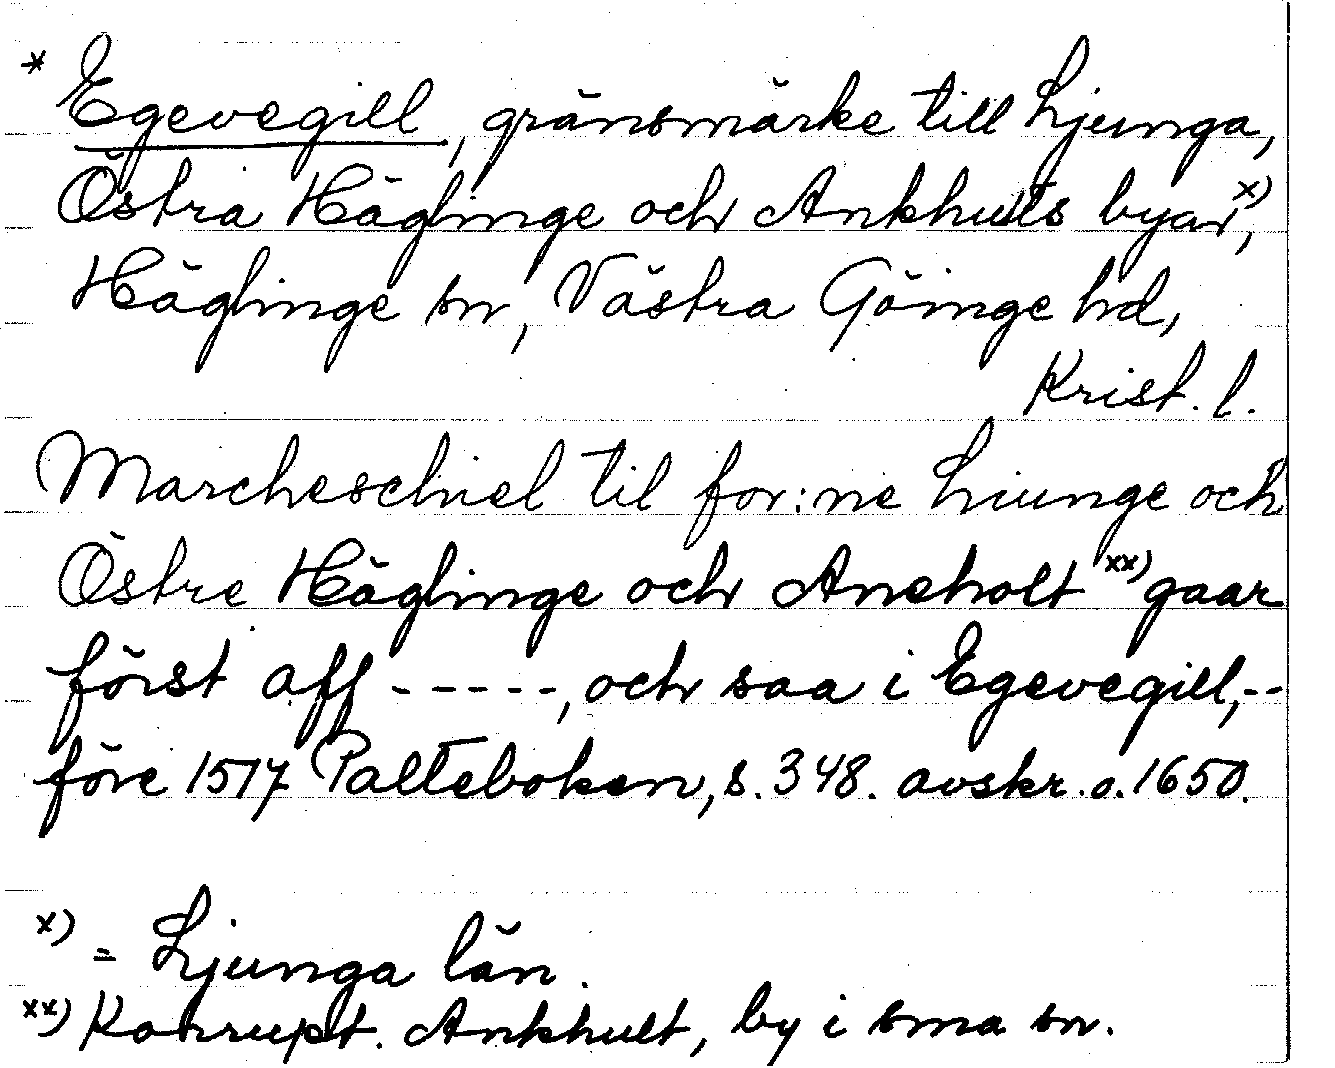 * Egevegill, gränsmärke till Ljunga,
Östra Häglinge och Ankhults byar, x)
Häglinge sn, Västra Göinge hd,
Krist. l.
Marcheschiel til for:ne Liunge och
Östre Häglinge och Aneholt xx) gaar
först aff - - - - -, och saa i Egevegill, - -
före 1517 Palteboken, s. 348. avskr. o. 1650.
x) = Ljunga län.
xx) Korrupt. Ankhult, by i sma sn.